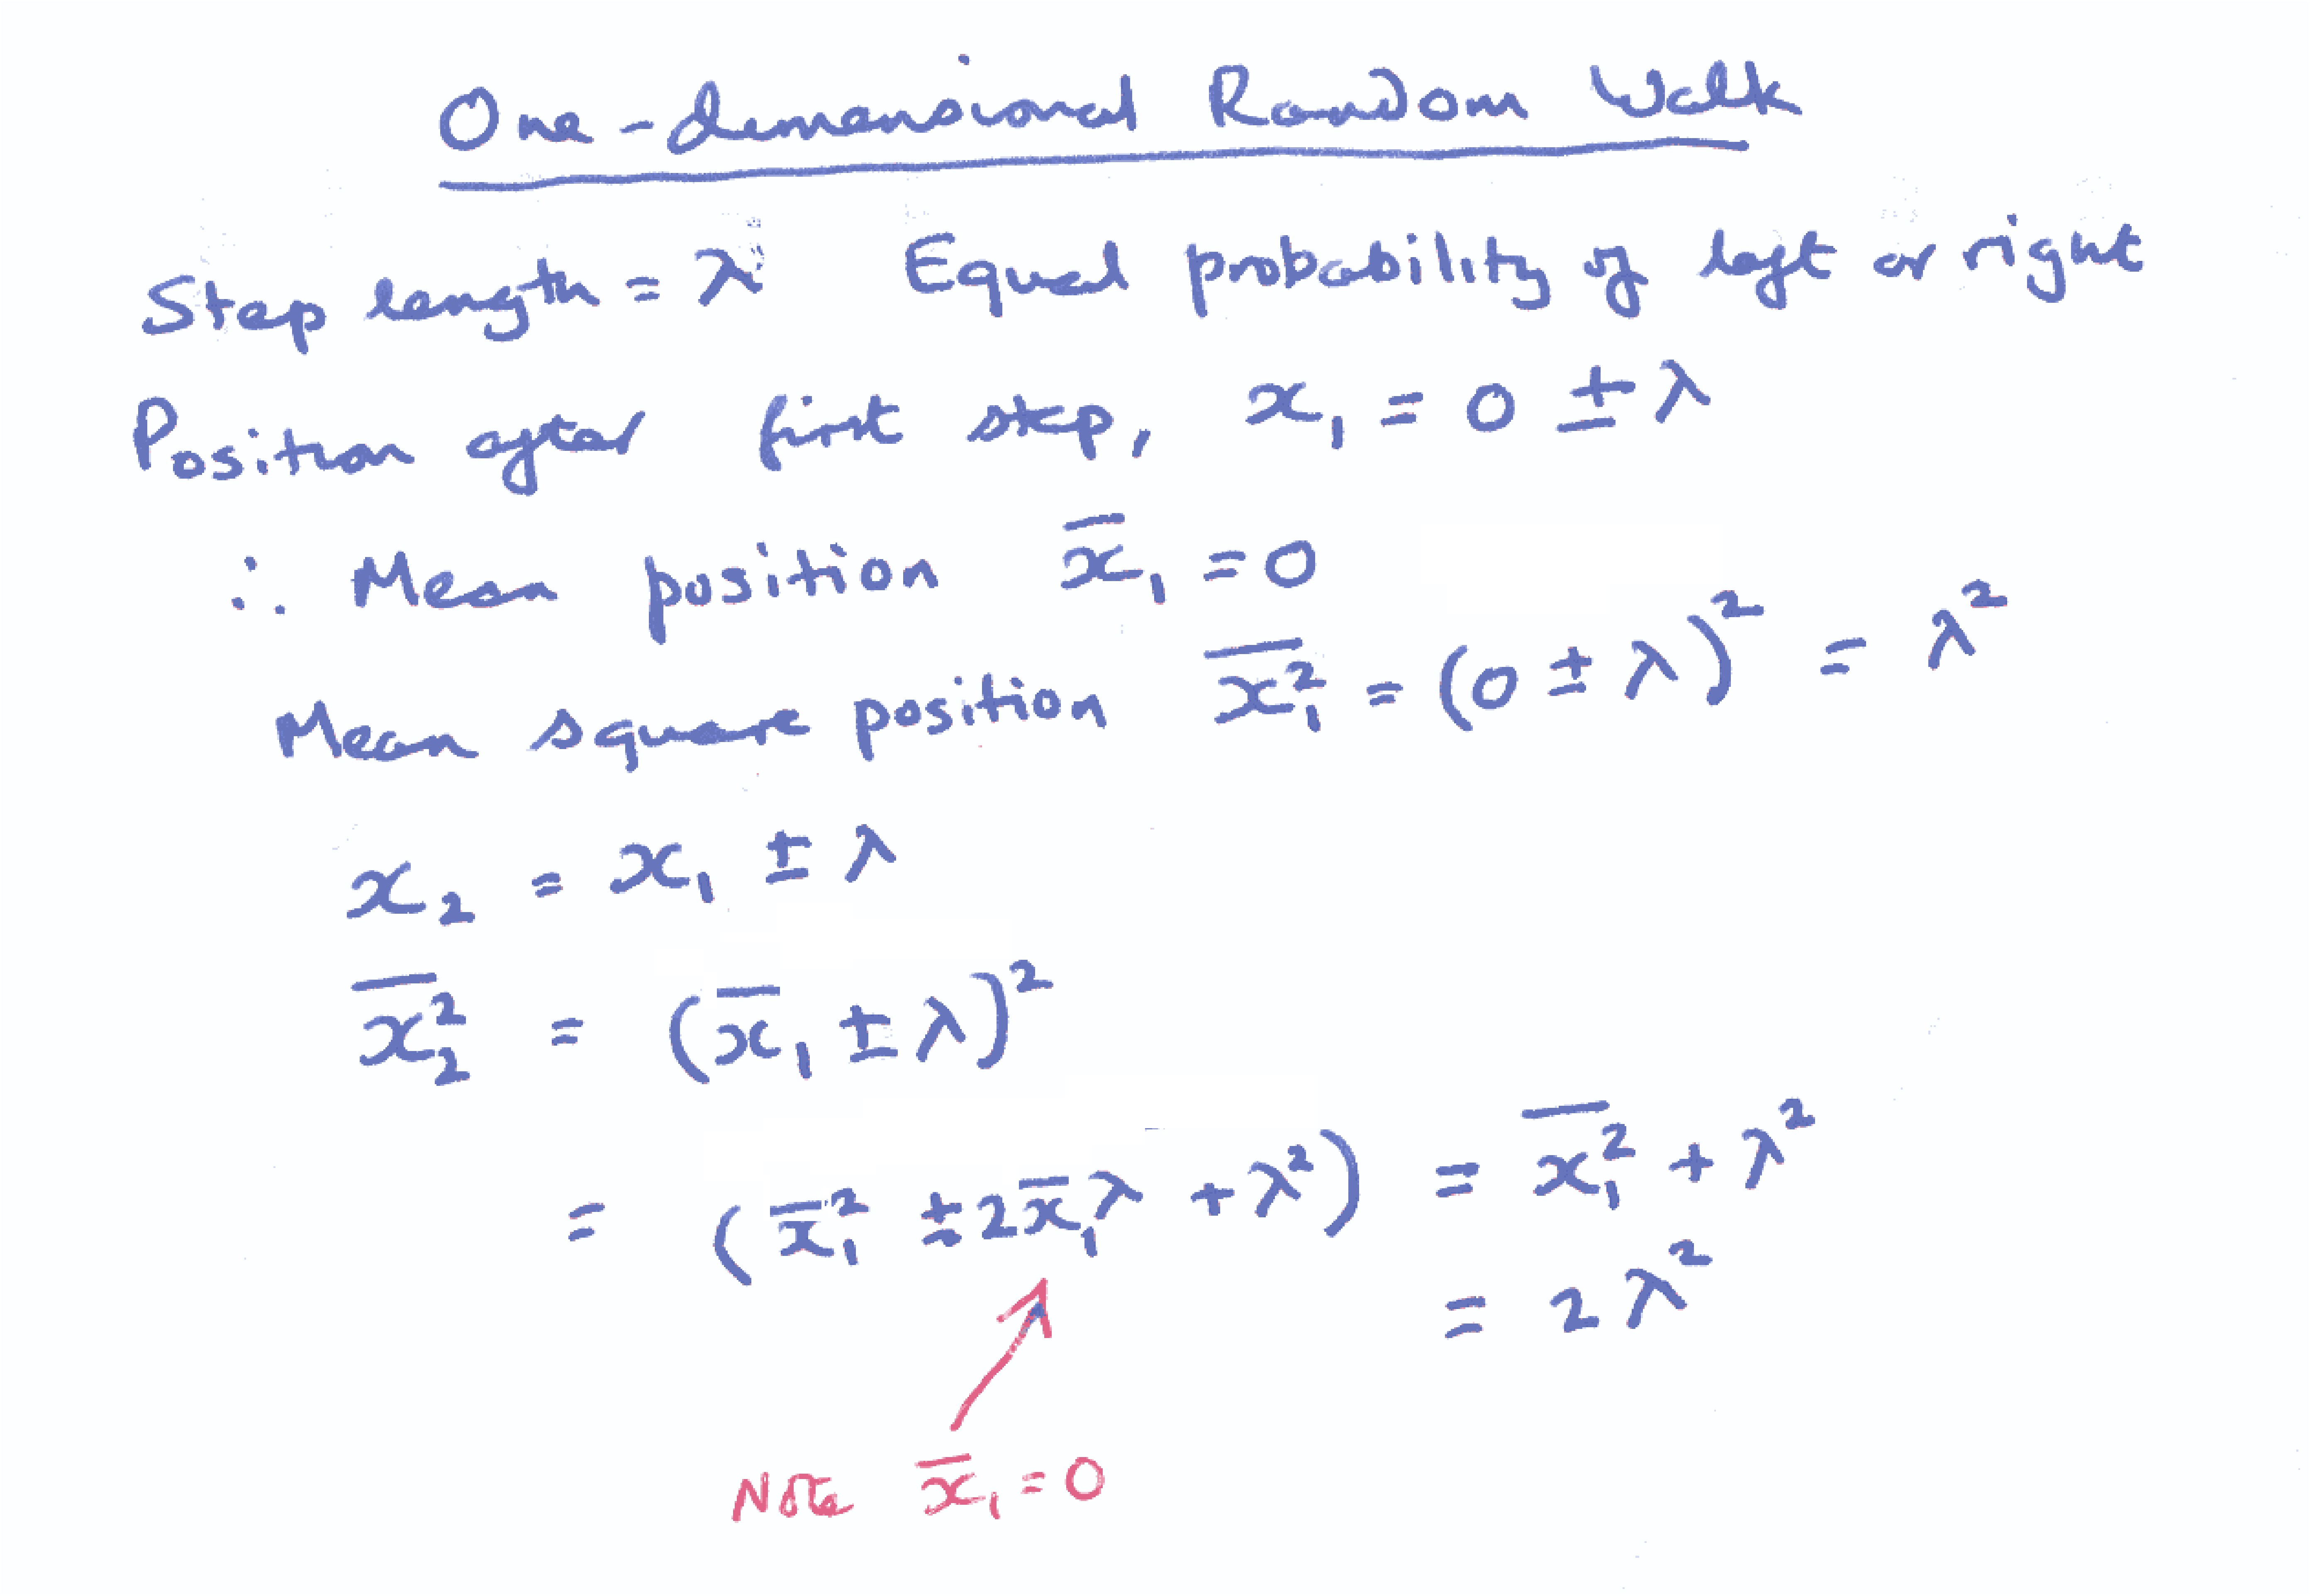 One-dimensional Random Walk
Step length = λ Equal probability of left or right
Position after first step, x₁ = 0 ± λ
∴ Mean position x̅₁ = 0
Mean square position \overline{x₁²} = (0 ± λ)² = λ²
x₂ = x₁ ± λ
\overline{x₂²} = (x̅₁ ± λ)²
= (x̅₁² ± 2x̅₁λ + λ²) = \overline{x₁²} + λ²
= 2λ²
Note x̅₁ = 0